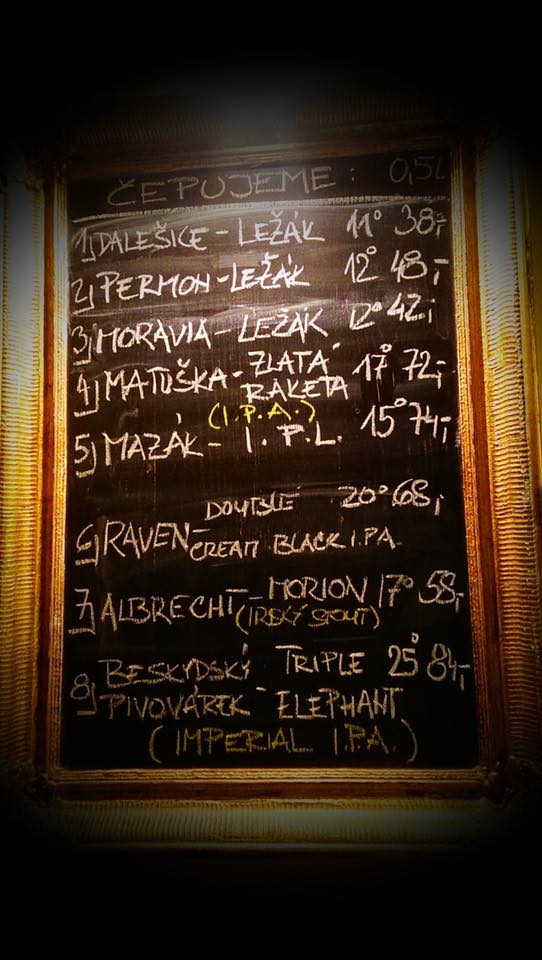 ČEPUJEME: 0,5L
1) DALEŠICE - LEŽÁK 11° 38,-
2) PERMON - LEŽÁK 12° 48,-
3) MORAVIA - LEŽÁK 12° 42,-
4) MATUŠKA - ZLATÁ 17° 72,-
RAKETA
(I.P.A.)
5) MAZÁK - I.P.L. 15° 74,-
DOUBLE 20° 68,-
6) RAVEN - CREAM BLACK I.P.A.
7) ALBRECHT - MORION 17° 58,-
(IRSKÝ STOUT)
8) BESKYDSKÝ TRIPLE 25° 84,-
PIVOVÁREK - ELEPHANT
(IMPERIAL I.P.A.)